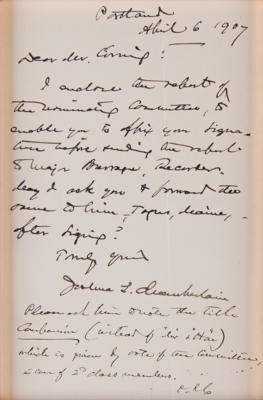 Portland
April 6 1907
Dear Mr. Corning:
I enclose the report of
the nominating committee, to
enable you to affix your signa-
ture before sending the report
to Major Burrage, Recorder.
May I ask you to forward the
same to him, Togus, Maine,
after signing?
Truly yours
Joshua L. Chamberlain
Please ask him to note the title
Companion (instead of
which is given by vote of the Committee,
in case of 2d class members.